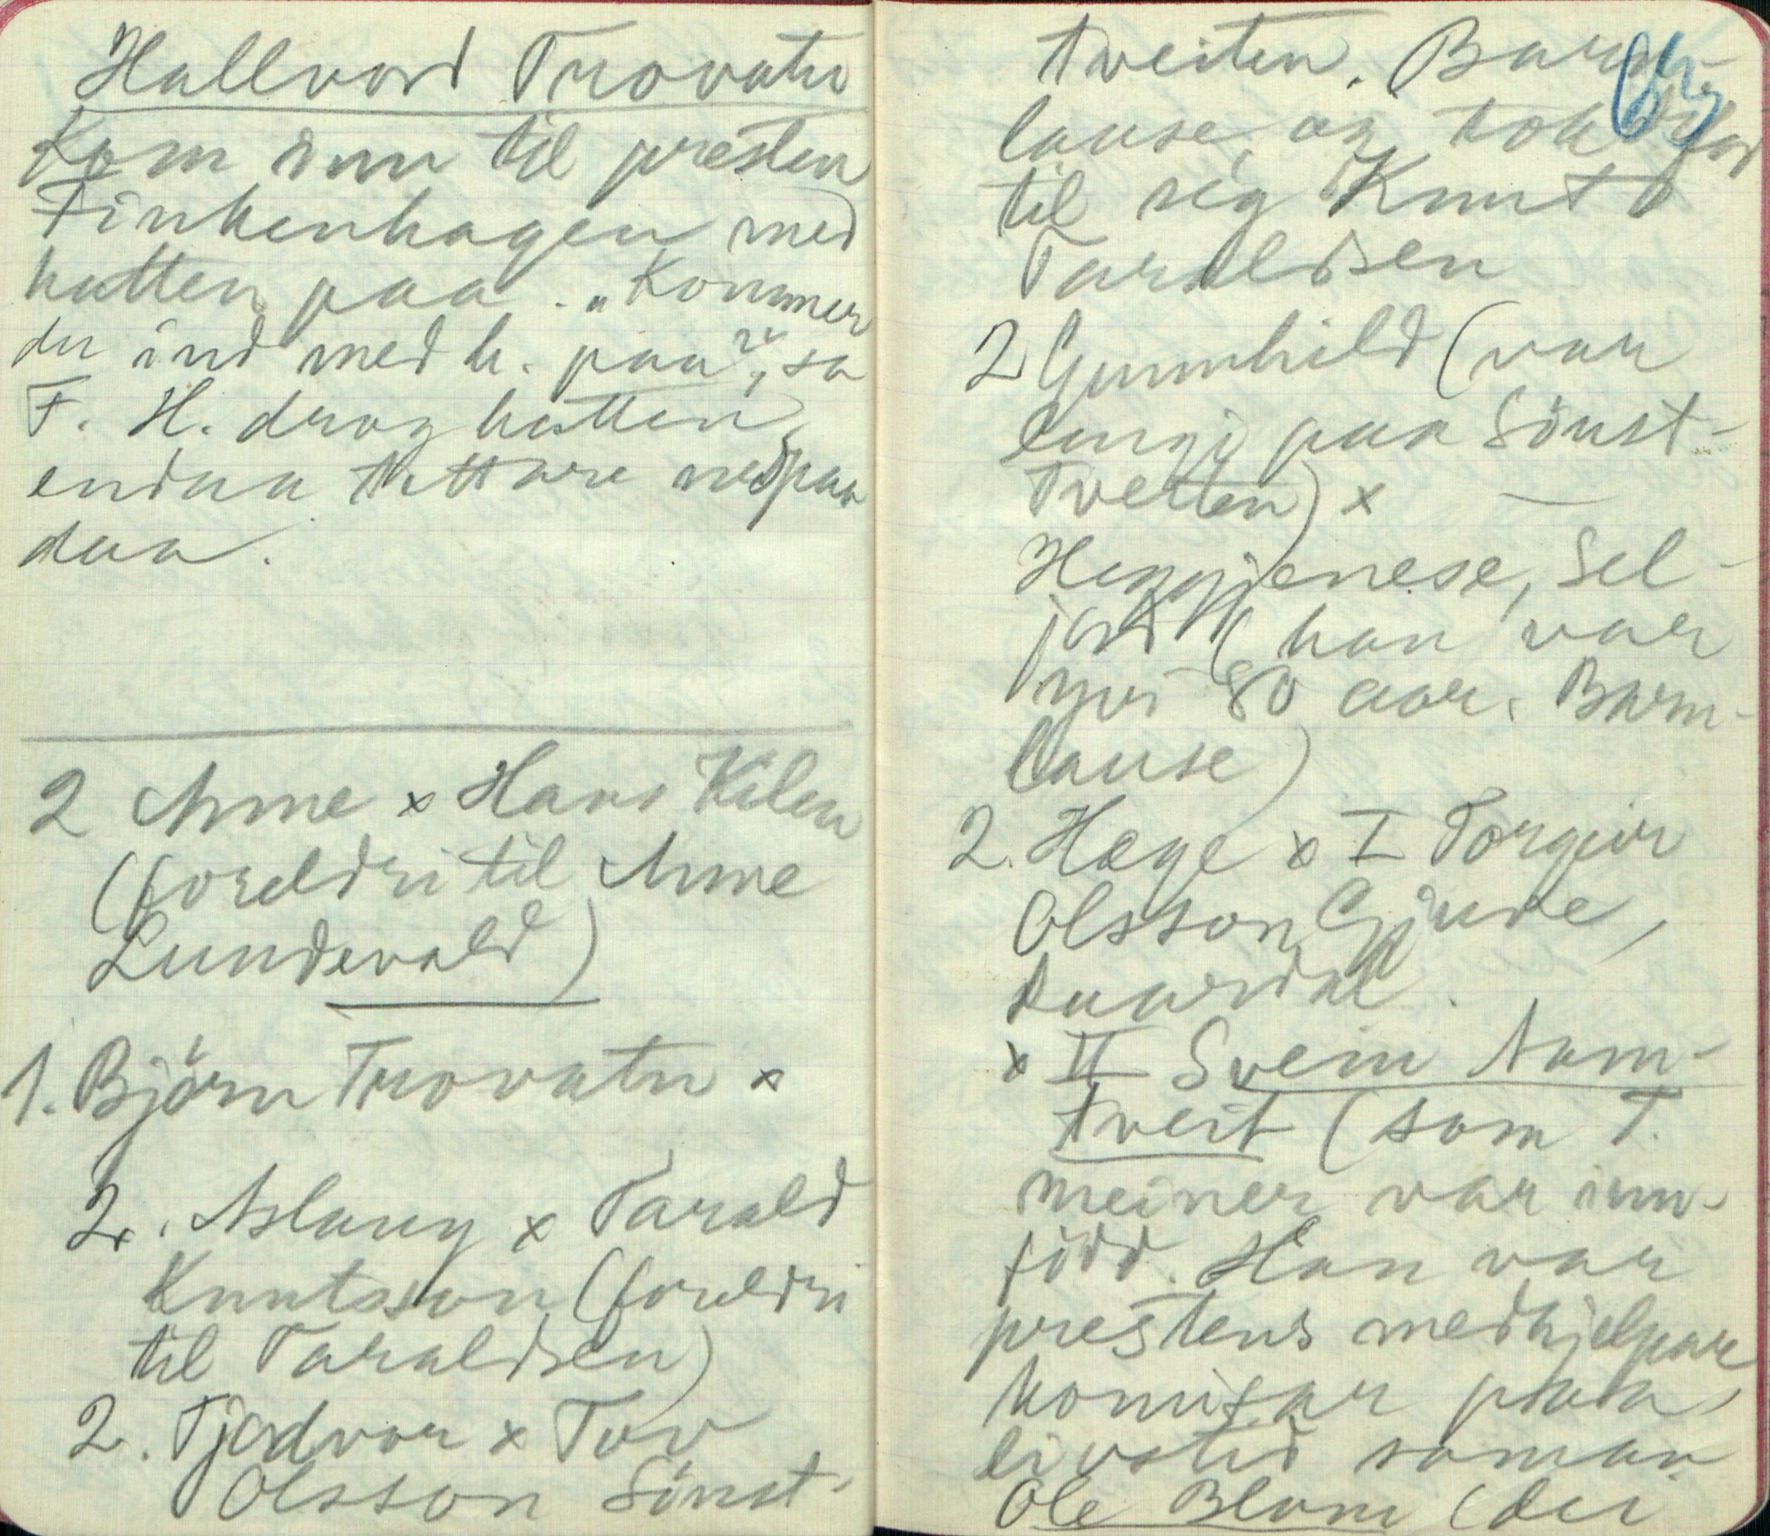 Hallvord Trovatn
Kom inn til presten
Finkenhagen med
hatten paa. „Kommer
du ind med h. paa?", sa
F. H. drog hatten
endaa tettare ned paa
daa.
2 Anne x Hans Kilen
(foreldri til Anne
Lundevald)
1. Björn Trovatn x
2. Aslaug x Tarald
Knutsson (foreldri
til Taraldsen)
2. Tjodvor x Tov
Olsson Sönst-
64
tveiten. Barn-
lause, og tok
til seg Knut
Taraldsen
2 Gunnhild (var
lengi paa Sönst-
tveiten) x —
Heggjenese, Sel-
jord (han var
yvi 80 aar. Barn-
lause)
2. Hæge x I Torgeir
Olsson Gjuve,
x II Svein Aam-
tveit (som T.
meiner var inn-
född. Han var
prestens medhjelpar
komisær paa
livstid saman
Ole Blom (dei